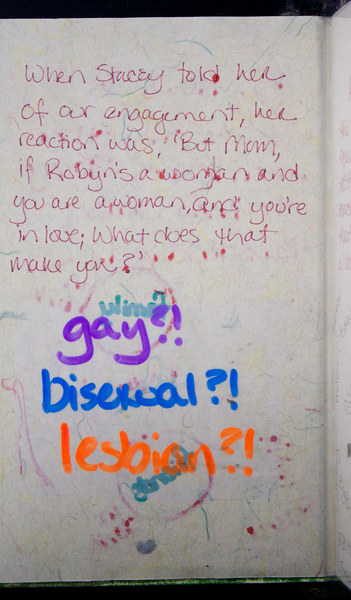 When Stacey told her
of our engagement, her
reaction was, 'But Mom,
if Robyn's a woman and
you are a woman, and you're
in love; What does that
make you?'
gay?!
bisexual?!
lesbian?!